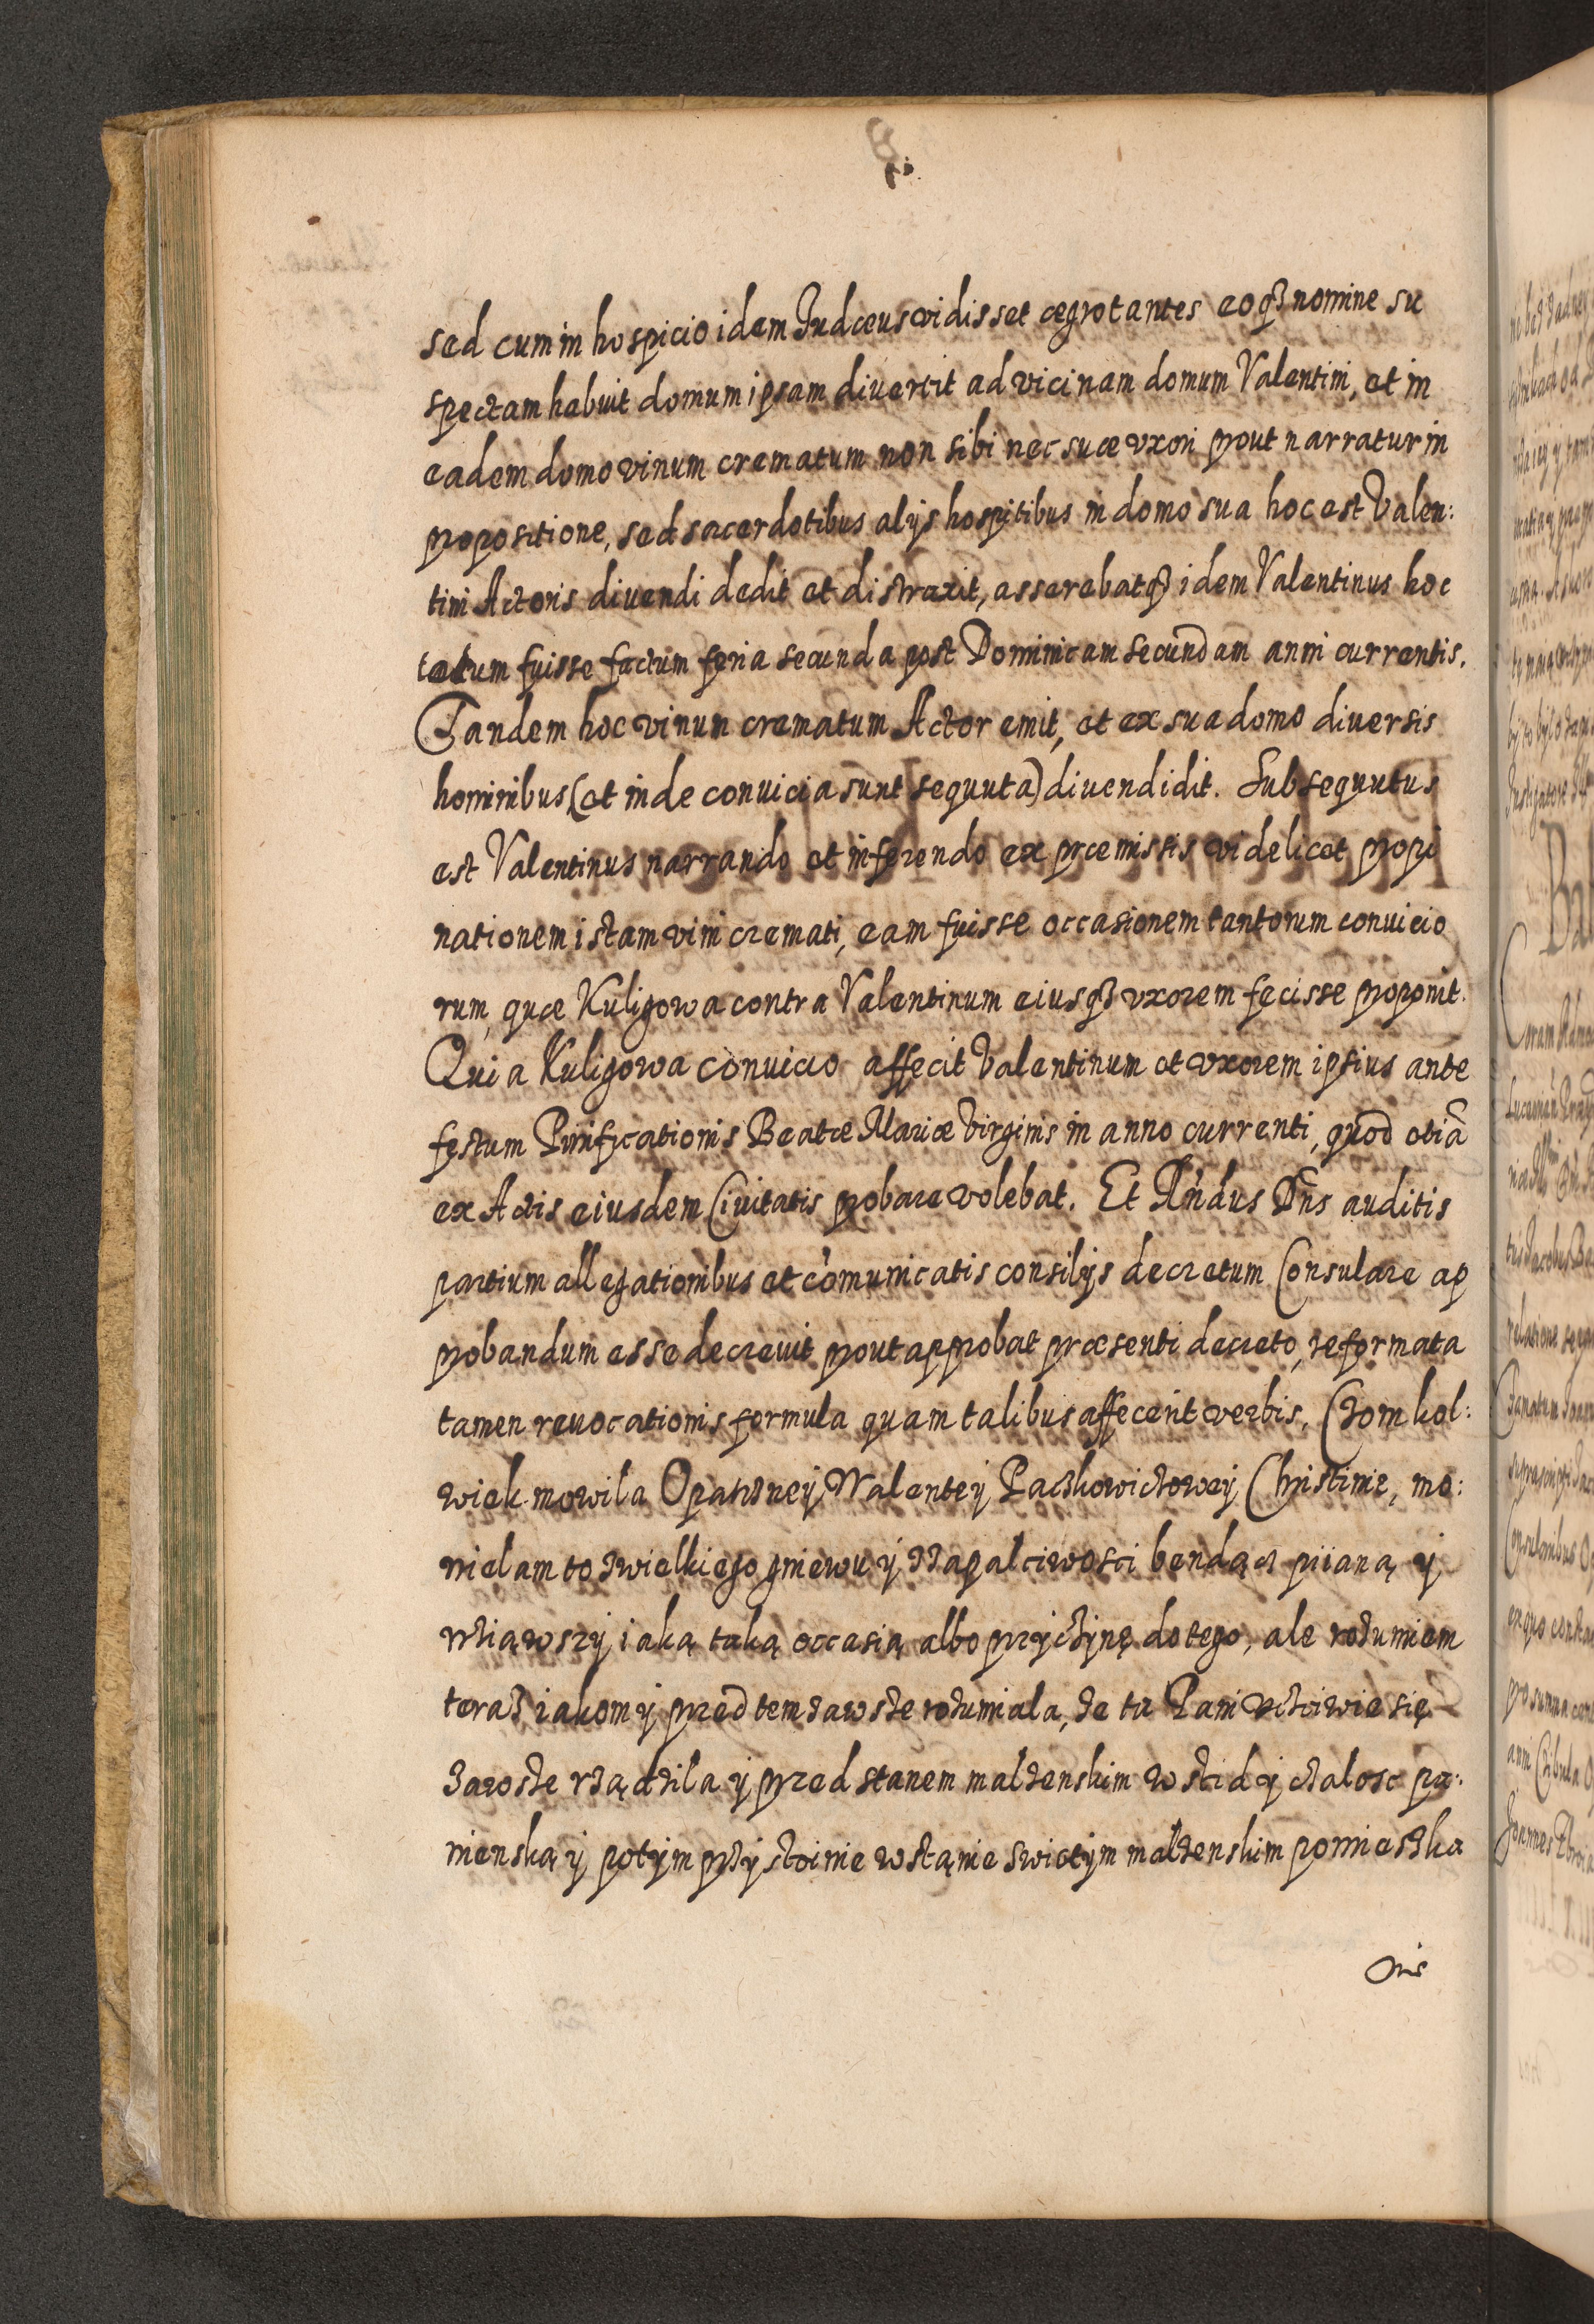 sed cum in hospicio idem Judæus vidisset ægrotantes eoq3 nomine su
spectam habuit domum ipsam divertit ad vicinam domum Valentini, et in
eadem domo vinum crematum non sibi nec suæ vxori prout narratur in
propositione, sed sacerdotibus alijs hospitibus in domo sua hoc est Valen:
tini Actoris divendi dedit et distraxit, asserebatq3 idem Valentinus hoc
totum fuisse factum feria secunda post Dominicam secundam anni currentis.
Tandem hoc vinum crematum Actor emit, et ex sua domo diversis
hominibus (et inde convicia sunt sequuta) divendidit. Subsequutus
est Valentinus narrando et inferendo ex præmissis videlicet propi
nationem istam vini cremati, eam fuisse occasionem tantorum convicio
rum, quæ Kuligowa contra Valentinum eiusq3 vxorem fecisse proponit.
Quia Kuligowa convicio affecit Valentinum et vxorem ipsius ante
festum Purificationis Beatæ Mariæ Virginis in anno currenti, quod etiã
ex Actis eiusdem Civitatis probare volebat. Et Rńdus Dńs auditis
partium allegationibus et cõmunicatis consilijs decretum Consulare ap
probandum esse decrevit prout approbat præsenti decreto, reformata
tamen revocationis formula quam talibus affecerit verbis, Czom kol:
wiek mowila Opatrzney Walentey Paczkowiczowey Christinie, mo:
wielam to zwielkiego gniewu y zzapalciwosci bendącz piianą y
wziąwszy iaką taką occasią albo przyczynę do tego, ale rozumiem
teraz iakom y przed tem zawsze rozumiala, ze ta Pani vcziwie się
zawsze rządzila y przed stanem malzenskim wstid y czalosc pa:
nienską y potym przystoinie wstąnie swietym malzenskim pomieszka